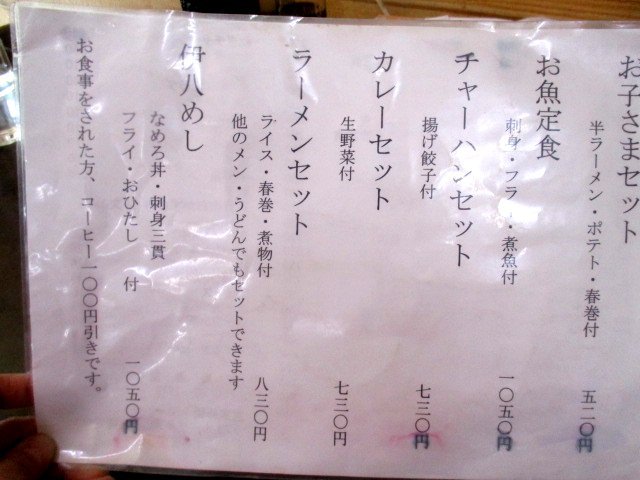 お子さまセット
半ラーメン・ポテト・春巻付
五二〇円
お魚定食
刺身・フラ ・煮魚付
一〇五〇円
チャーハンセット
揚げ餃子付
七三〇円
カレーセット
生野菜付
七三〇円
ラーメンセット
ライス・春巻・煮物付
他のメン・うどんでもセットできます
八三〇円
伊八めし
なめろ丼・刺身三貫
フライ・おひたし 付
一〇五〇円
お食事をされた方、コーヒー一〇〇円引きです。